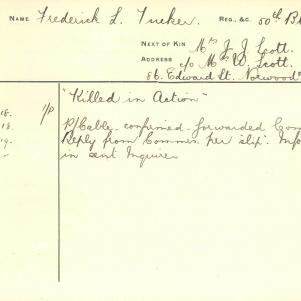 NAME Frederick L. Tucker. REG., &C. 50th B
NEXT OF KIN Mrs J. J. Scott.
ADDRESS c/o Mrs W. Scott.
86. Edward St. Norwood
"Killed in Action"
18. 1/P
18. P/Cable. confirmed. forwarded
19. Reply from Commrs. per "slip".
in sent Inquirer